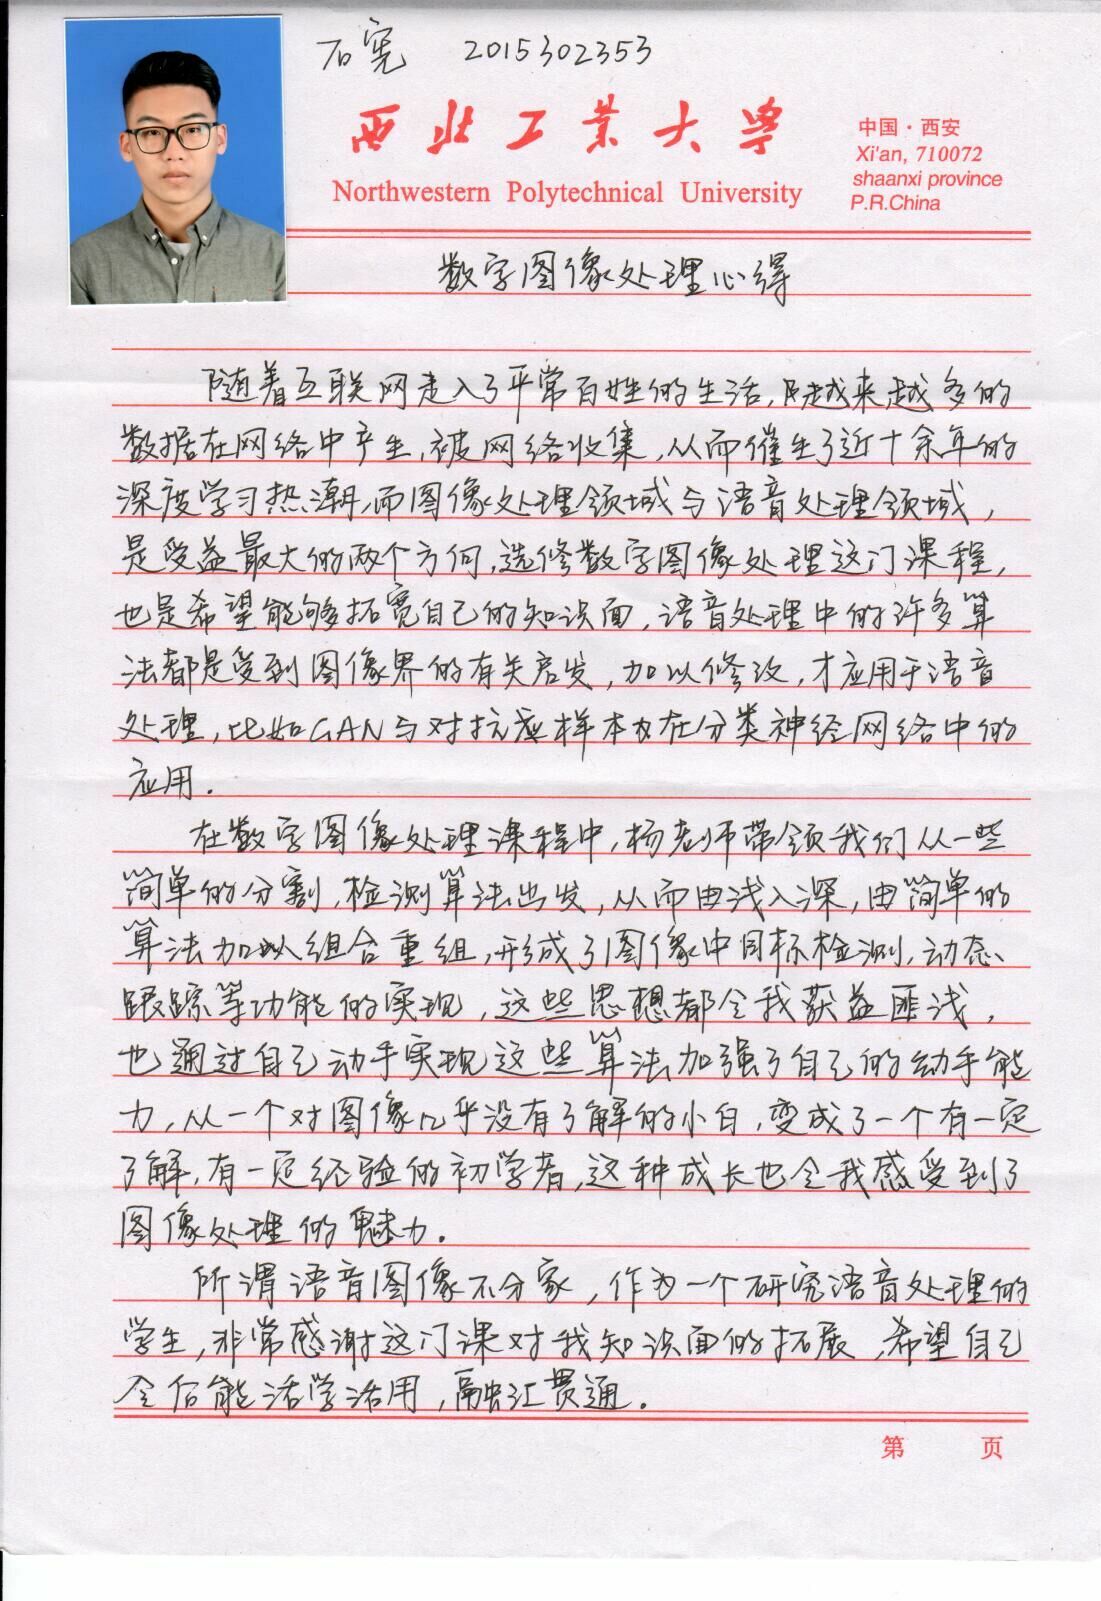 石宪 2015302353
西北工业大学
Northwestern Polytechnical University
中国·西安
Xi'an, 710072
shaanxi province
P.R.China
数字图像处理心得
随着互联网走入了平常百姓的生活,越来越多的
数据在网络中产生,被网络收集,从而催生了近十余年的
深度学习热潮,而图像处理领域与语音处理领域,
是受益最大的两个方向,选修数字图像处理这门课程,
也是希望能够拓宽自己的知识面,语音处理中的许多算
法都是受到图像界的有关启发,加以修改,才应用于语音
处理,比如GAN与对抗样本在分类神经网络中的
应用.
在数字图像处理课程中,杨老师带领我们从一些
简单的分割,检测算法出发,从而由浅入深,由简单的
算法加以组合重组,形成了图像中目标检测,动态
跟踪等功能的实现,这些思想都令我获益匪浅,
也通过自己动手实现这些算法加强了自己的动手能
力,从一个对图像几乎没有了解的小白,变成了一个有一定
了解,有一定经验的初学者,这种成长也令我感受到了
图像处理的魅力.
所谓语音图像不分家,作为一个研究语音处理的
学生,非常感谢这门课对我知识面的拓展,希望自己
今后能活学活用,融汇贯通.
第 页